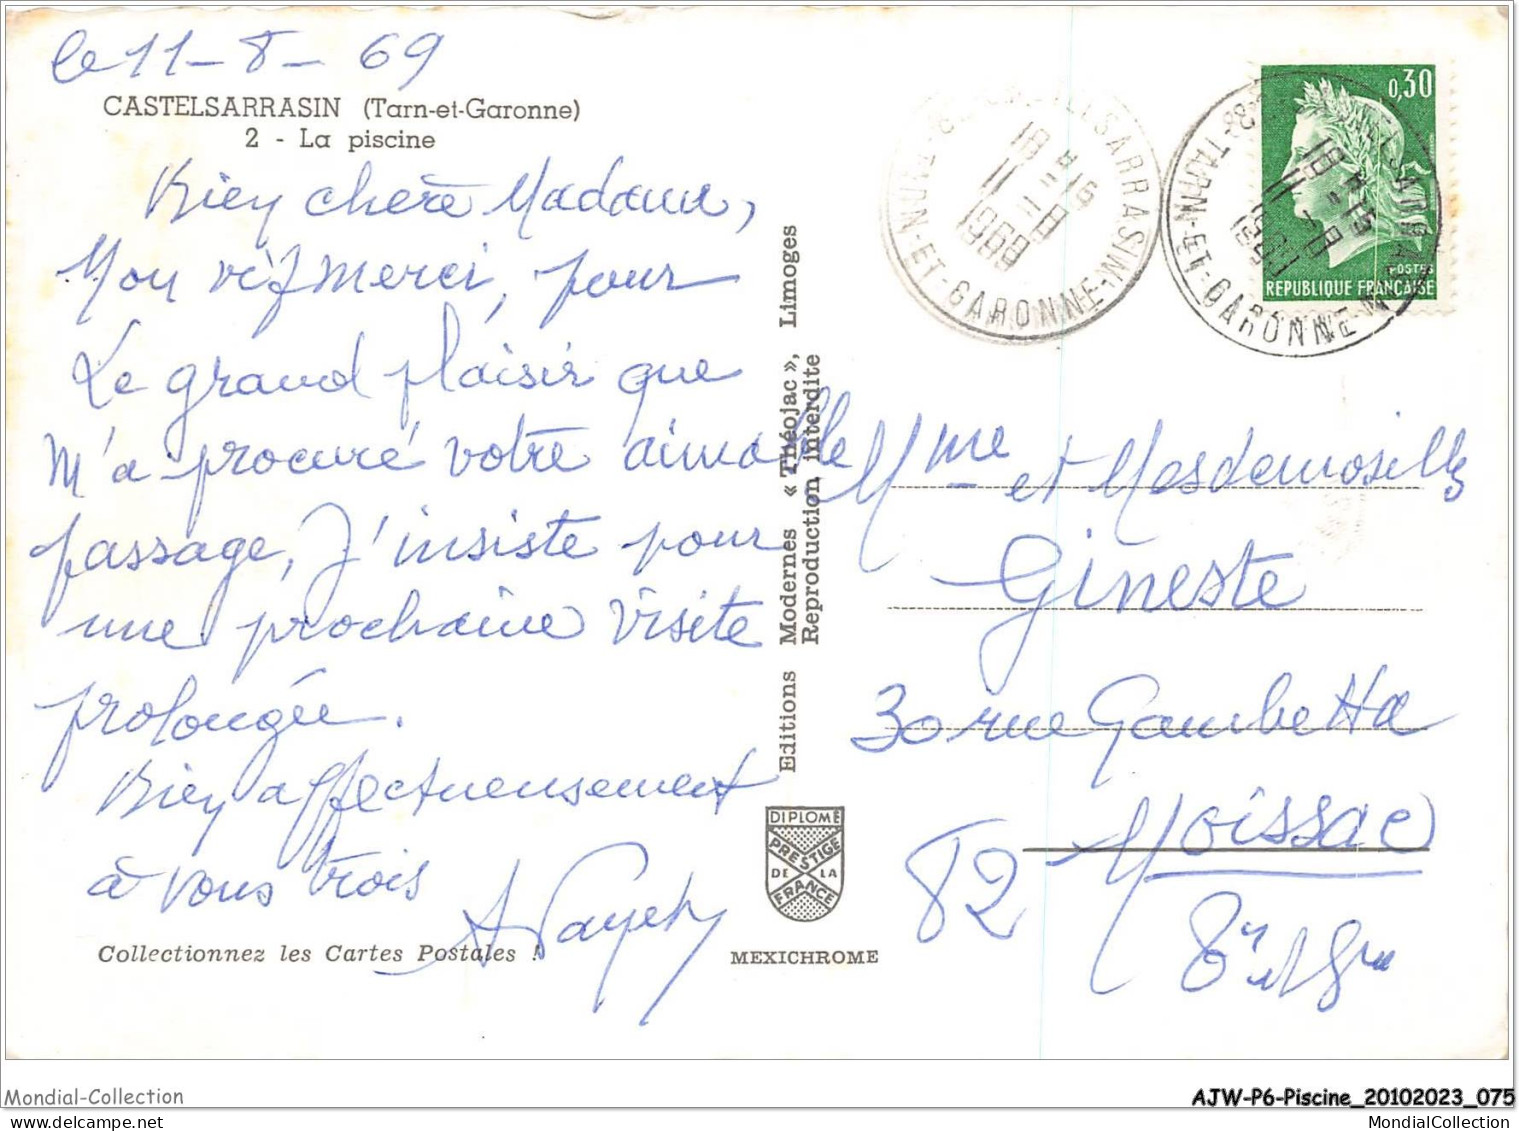 le 11-8-69
CASTELSARRASIN (Tarn-et-Garonne)
2 - La piscine
Bien chère Madame,
Mon vif merci, pour
Le grand plaisir que
m'a procuré votre aimable
passage, J'insiste pour
une prochaine visite
prolongée.
Bien affectueusement
à vous trois
Collectionnez les Cartes Postales !
Editions Modernes « Théojac », Limoges
Reproduction interdite
DIPLOME
PRESTIGE
DE LA
FRANCE
MEXICHROME
CASTELSARRASIN
TARN-ET-GARONNE
18 H 15
11 - 8
1969
0,30
POSTES
REPUBLIQUE FRANÇAISE
TARN-ET-GARONNE
18 H 15
11 - 8
1969
Mme et Mesdemoiselles
Gineste
30 rue Gambetta
82 Moissac
Tn et Gne
Mondial-Collection
AJW-P6-Piscine_20102023_075
MondialCollection